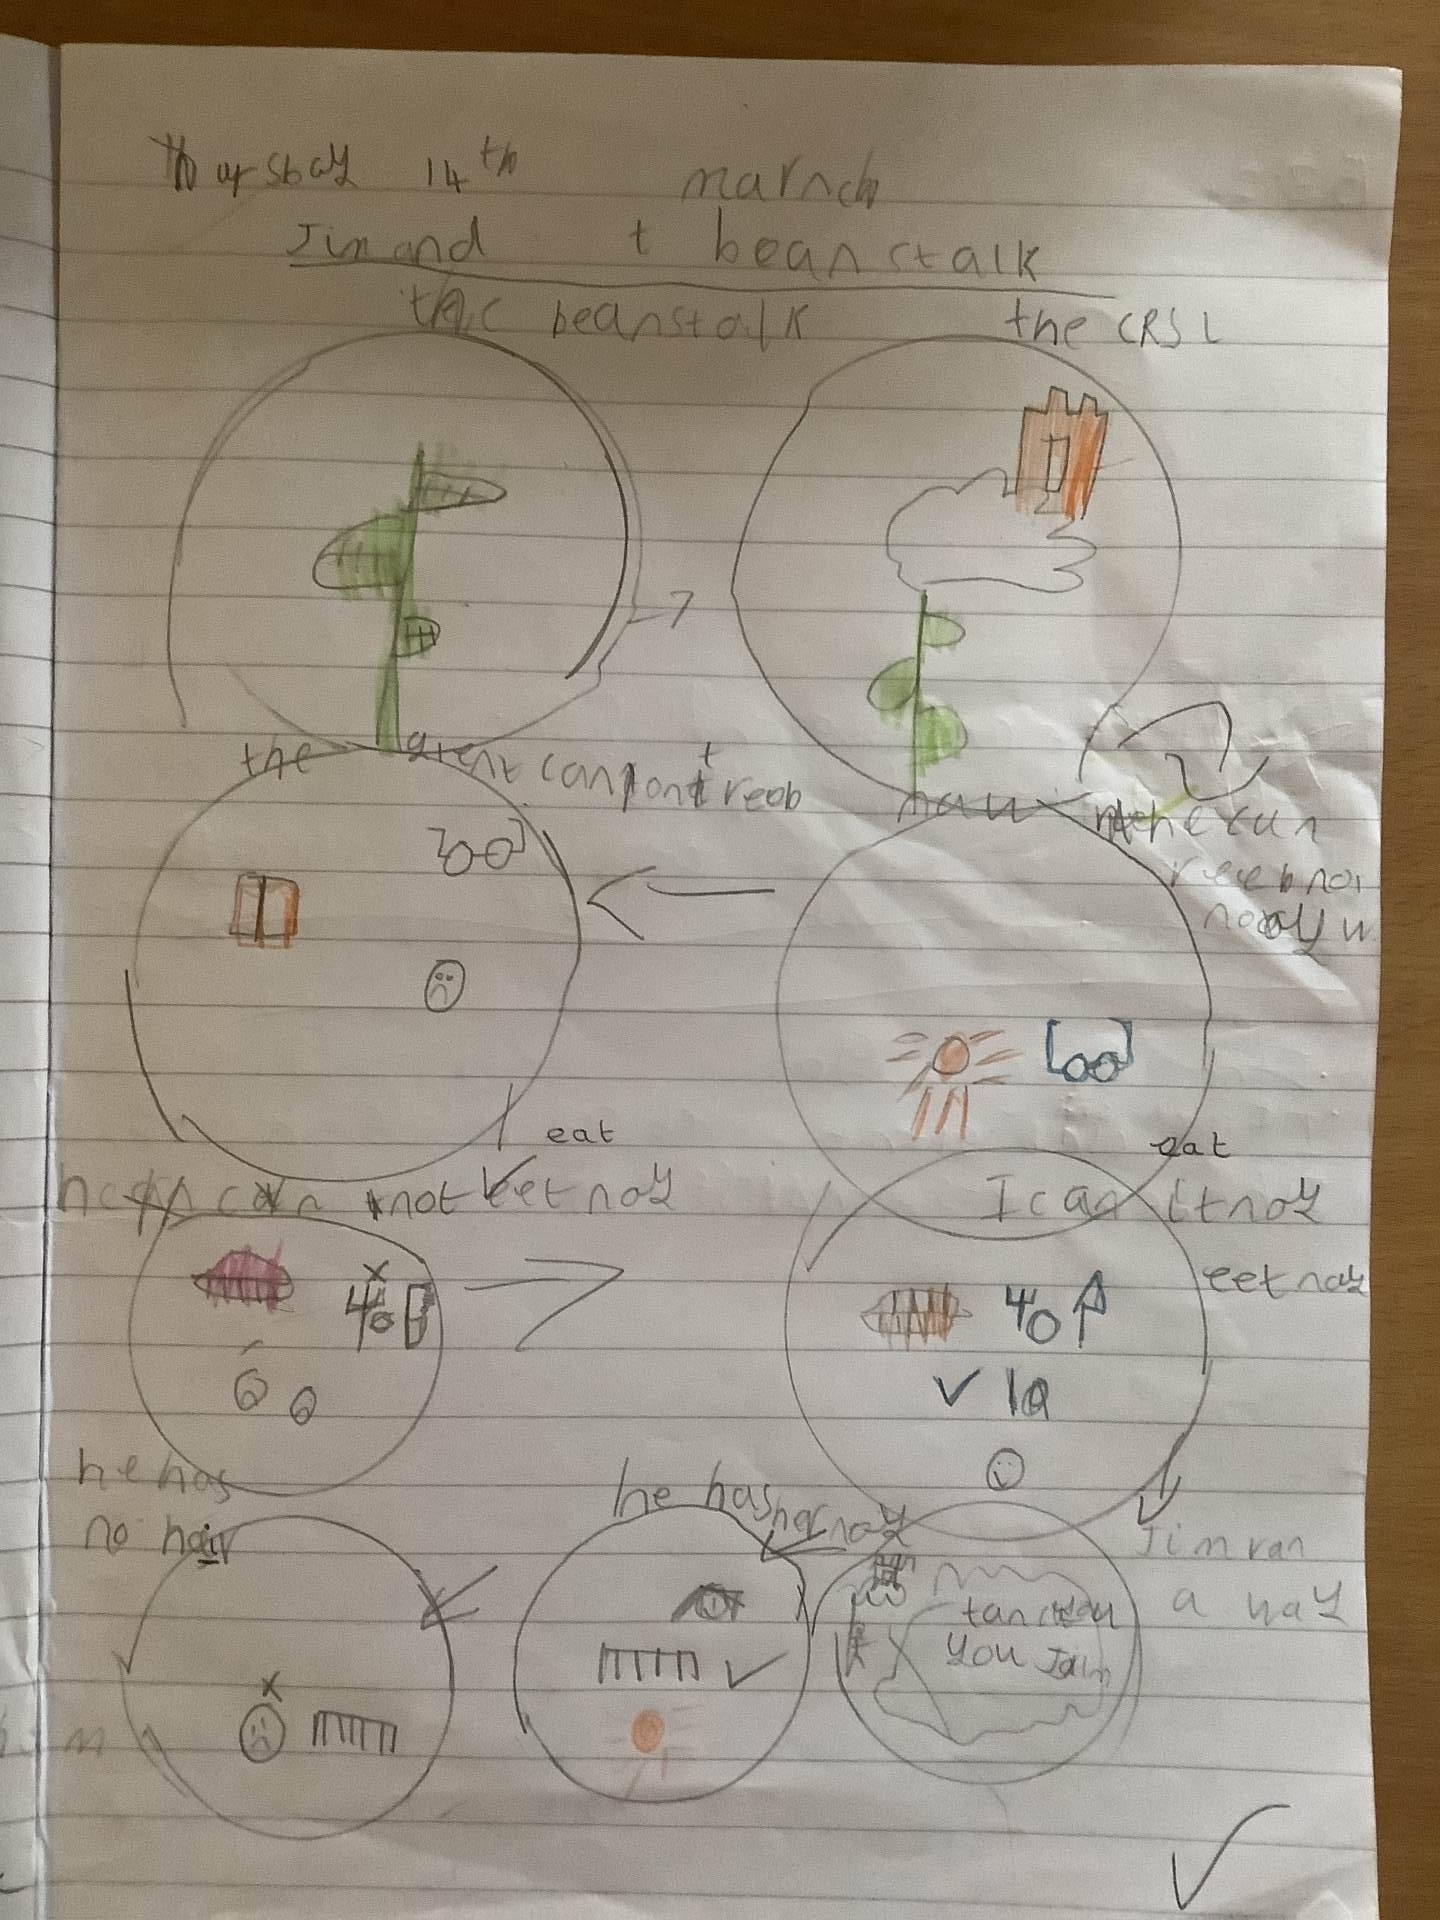 Thursbay 14th march
Jim and t beanstalk
the beanstalk the CRSL
the gient can not reob
nau he can
reeb noi
nooy
eat
eat
he can not eet noy
I can it noy
eet noy
40
40
10
he has
no hair
he has har noy
Jim ran
a way
you Jim